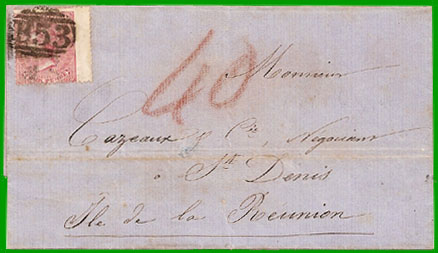 B53
40
Monsieur
Cazeaux & Cie, Négociant
à St Denis
Ile de la Réunion